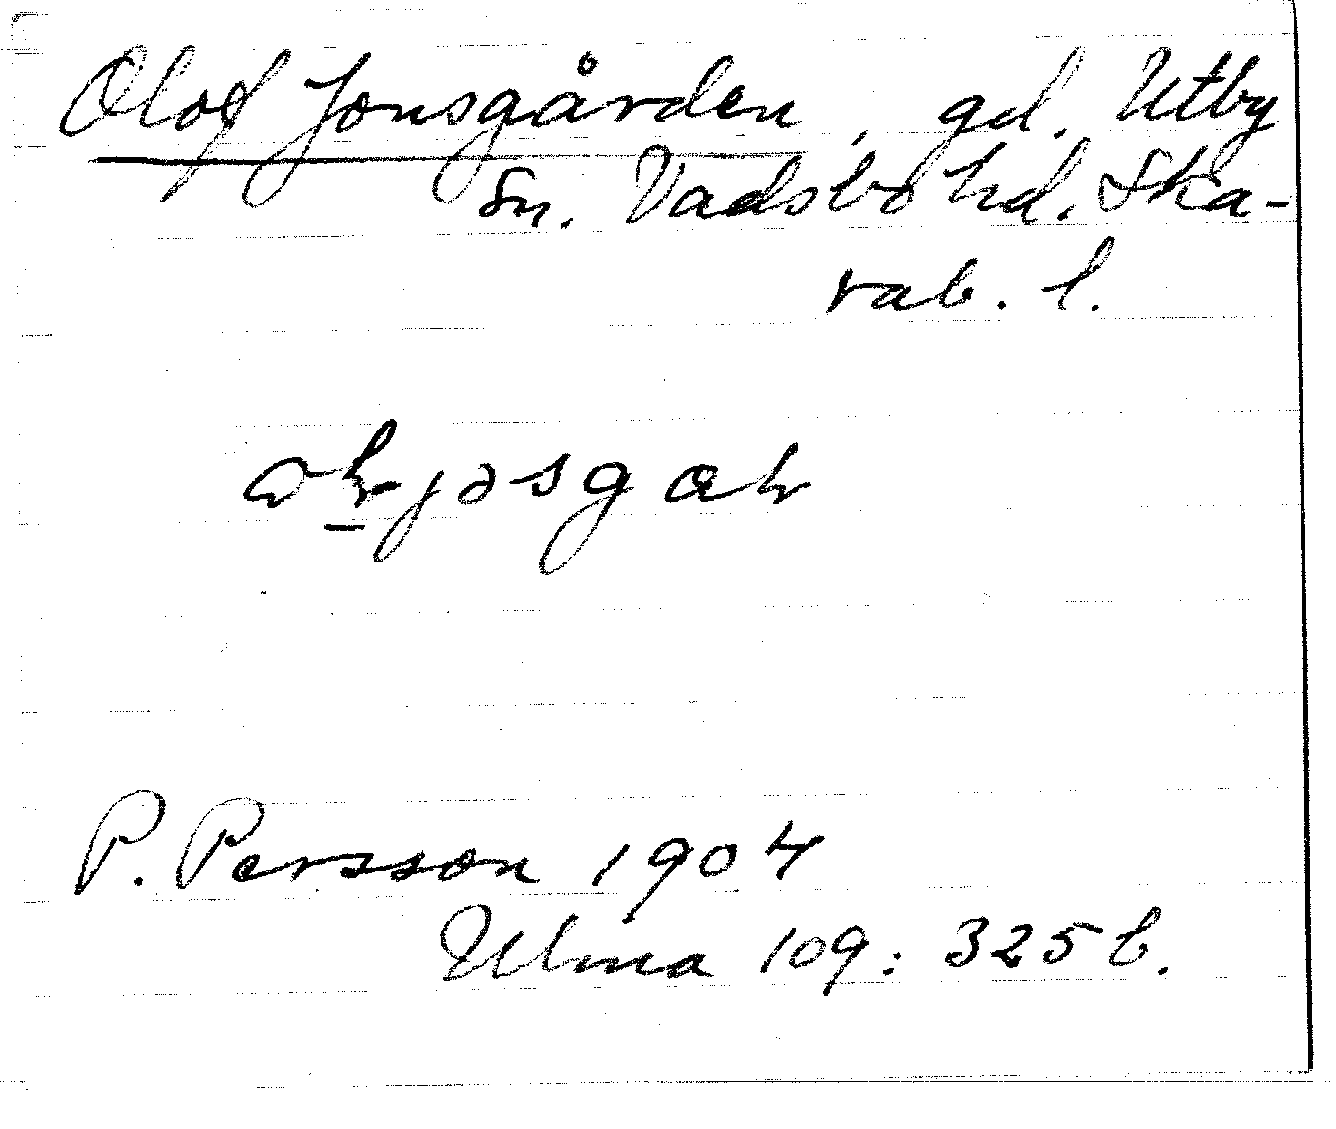 Olof Jonsgården, gd. Utby
Sn. Vadsbo hd. Ska-
rab. l.
P. Persson 1904
Ulma 109: 325 b.